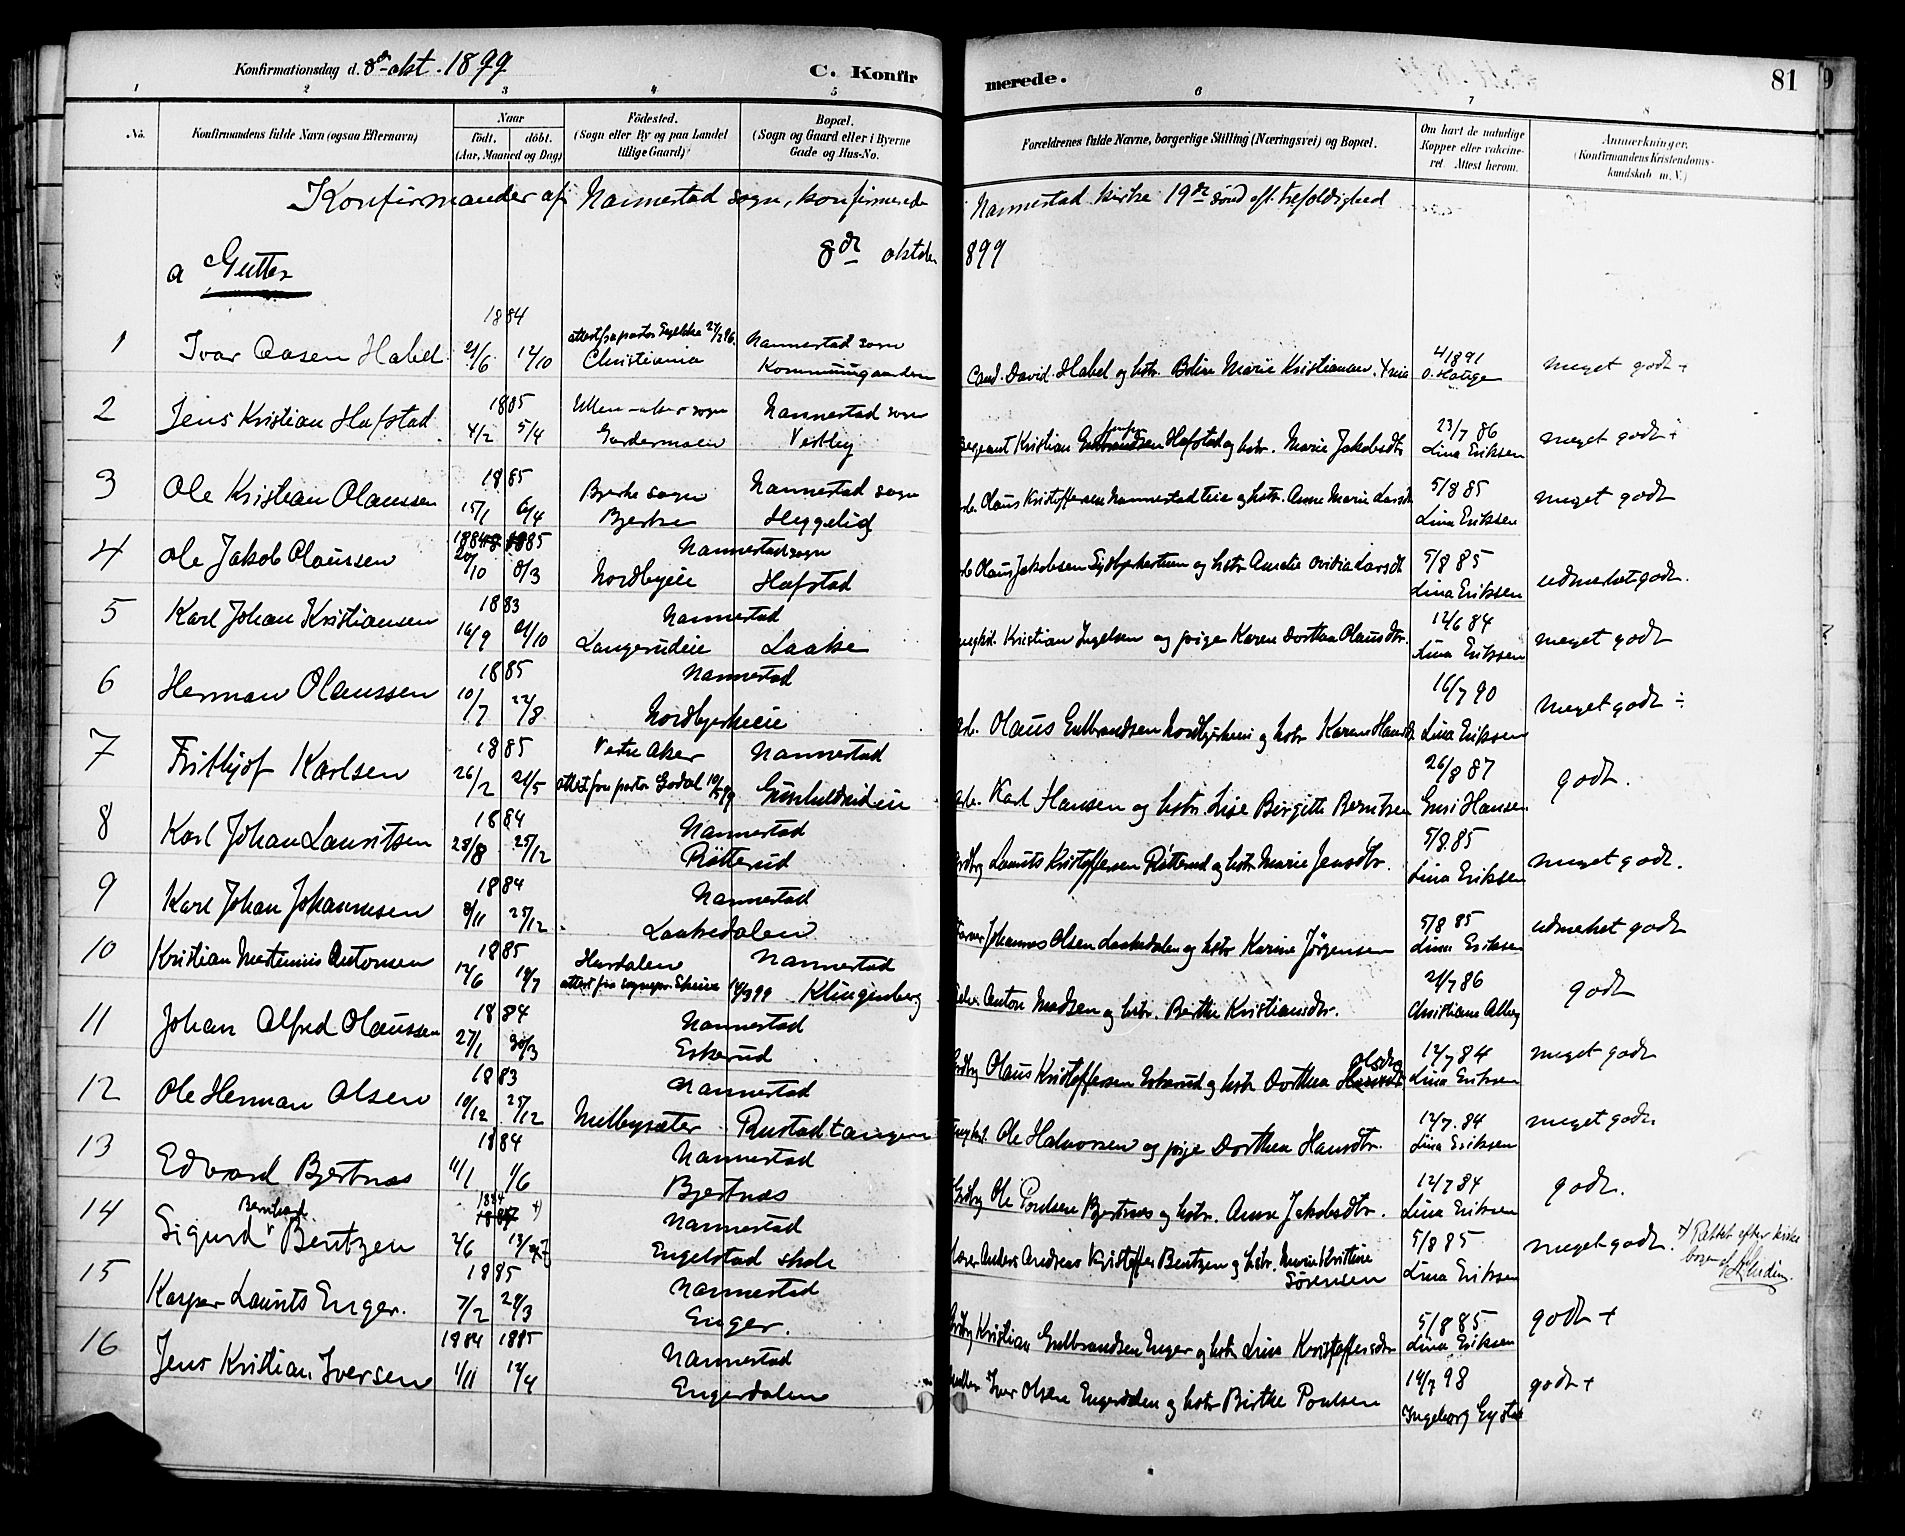 Konfirmationsdag d. 8de okt. 1899
C. Konfirmerede.
81
1 2 3 4 5 6 7 8
No. Konfirmandens fulde Navn (ogsaa Efternavn)
Naar født. døbt. (Aar, Maaned og Dag)
Fødested. (Sogn eller By og paa Landet tillige Gaard)
Bopæl. (Sogn og Gaard eller i Byerne Gade og Hus-No.
Forældrenes fulde Navne, borgerlige Stilling (Næringsvei) og Bopæl.
Om havt de naturlige Kopper eller vakcineret. Attest herom.
Anmerkninger. (Konfirmandens Kristendomskundskab m. V.)
Konfirmander af Nannestad sogn, konfirmerede Nannestad kirke 19de sønd eft. trefoldighed
8de oktober 899
a Gutter
1884
1 Ivar Aasen Habel 21/6 12/10 Christiania Nannestad sogn Cand. David Habel og hstr. Marie Kristiansen 4/1891 O. Hauge meget godt +
2 Jens Kristian Hafstad 1885 4/2 5/4 Ullensaker sogn Gardermoen Nannestad sogn Vestby Sergeant Kristian Hafstad og hstr. Marie Jakobsdtr 23/7 86 Lina Eriksen meget godt +
3 Ole Kristian Olaussen 1885 15/1 6/4 Bjerke sogn Bjerke Nannestad sogn Heggelid Olaus Kristoffersen Nannestadeie og hstr. Anne Marie Larsdtr 5/8 85 Lina Eriksen meget godt
4 Ole Jakob Olaussen 1884 1885 20/10 8/3 Nannestad sogn Nordbyeie Hafstad Olaus Jakobsen og hstr Amalie Larsdt 5/8 85 Lina Eriksen udmerket godt.
5 Karl Johan Kristiansen 1883 16/9 21/10 Nannestad Langerudeie Laake ungkl. Kristian Ingelsen og pige Karen Dorthea Olausdtr. 12/6 84 Lina Eriksen meget godt
6 Herman Olaussen 1885 10/7 22/8 Nannestad Nordbyerkeeie arb. Olaus Gulbrandsen og hstr Karen Hansdt 16/7 90 Lina Eriksen meget godt ÷
7 Frithjof Karlsen 1885 26/2 21/5 Vestre Aker attest fra pastor Godal 10/5 99 Nannestad Gunhildrudeie arb. Karl Hansen og hstr. Lise Birgitte Berntsen 26/8 87 Guri Hansen godt.
8 Karl Johan Lauritsen 1884 23/8 25/12 Nannestad Røtterud Laurits Kristoffersen Røtterud og hstr Marie Jensdtr. 5/8 85 Lina Eriksen meget godt.
9 Karl Johan Johannesen 1884 8/11 25/12 Nannestad Laakedalen Johannes Olsen Laakedalen og hstr Karine Jørgensen 5/8 85 Lina Eriksen udmerket godt
10 Kristian Martinius Antonsen 1885 12/6 19/7 Hurdalen Nannestad Klingenberg Anton Madsen og hstr. Berthe Kristiansdtr. 21/7 86 Christiane Alberg godt
11 Johan Alfred Olaussen 1884 27/1 30/3 Nannestad Eskerud Olaus Kristoffersen Eskerud og hstr Dorthea Olsdtr 12/7 84 Lina Eriksen meget godt
12 Ole Herman Olsen 1883 10/12 25/12 Nannestad Melbysæter Rustadtangen Ole Halvorsen og pige Dorthea Hansdtr. 12/7 84 Lina Eriksen meget godt.
13 Edvard Bjertnæs 1884 11/1 1/6 Nannestad Bjertnæs Ole Poulsen Bjertnæs og hstr. Anne Jakobsdtr. 12/7 84 Lina Eriksen godt.
14 Sigurd Bernhard Bentzen 1884 +) 2/6 13/7 Nannestad Engelstad skole Lærer Anders Andreas Kristoffer Bentzen og hstr. Marie Kristine Sørensen 5/8 85 Lina Eriksen meget godt. +) Rettet efter kirkebogen
15 Kasper Laurits Enger. 1885 7/2 29/3 Nannestad Enger. Kristian Gulbrandsen Enger og hstr Lina Kristoffersdtr 5/8 85 Lina Eriksen godt +
16 Jens Kristian Iversen 1884 1885 1/11 12/4 Nannestad Engerdalen Iver Olsen Engerdalen og hstr Birthe Poulsen 19/7 98 Ingeborg godt +